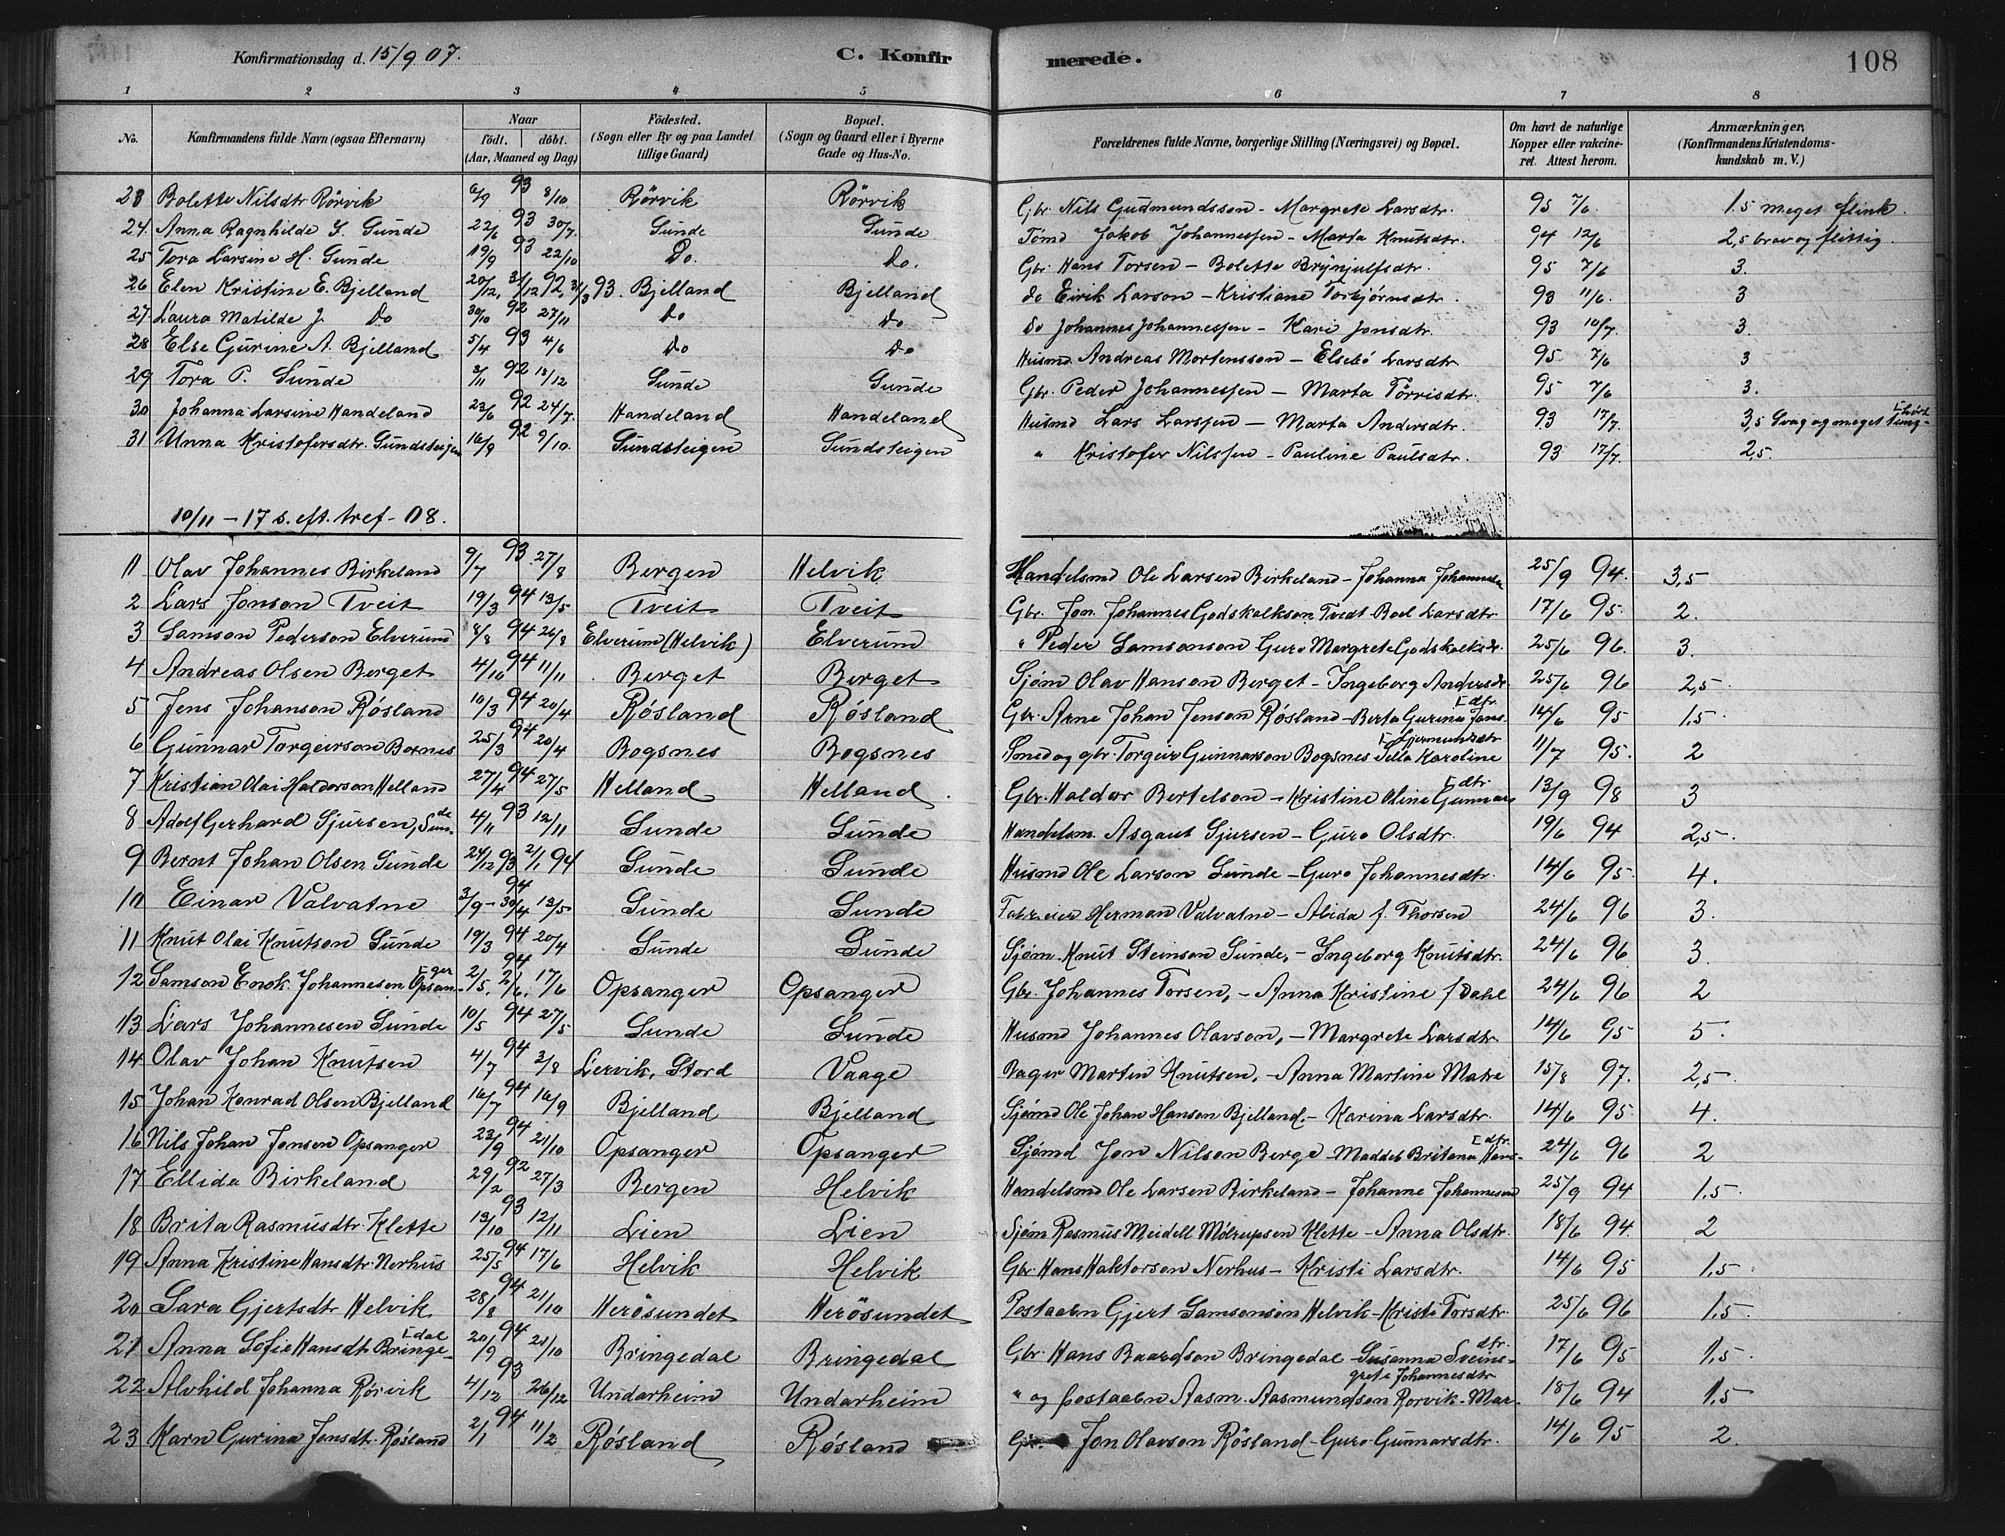 Konfirmationsdag d. 15/9 07. C. Konfirmerede. 108
1 2 3 4 5 6 7 8
No. Konfirmandens fulde Navn (ogsaa Efternavn) Naar født. døbt. (Aar, Maaned og Dag) Fødested. (Sogn eller By og paa Landet tillige Gaard) Bopæl. (Sogn og Gaard eller i Byerne Gade og Hus-No. Forældrenes fulde Navne, borgerlige Stilling (Næringsvei) og Bopæl. Om havt de naturlige Kopper eller vakcineret. Attest herom. Anmærkninger, (Konfirmandens Kristendomskundskab m. V.)
23 Bolette Nilsdtr Rörvik 6/9 93 8/10 Rörvik Rörvik Gbr. Nils Gudmundsson - Margrete Larsdtr. 95 7/6 1.5 meget flink.
24. Anna Ragnhilde J. Sunde 22/6 93 30/7. Sunde Sunde Tömd Jakob Johannessen - Marta Knutsdtr. 94 12/6 2,5 brav og flittig.
25 Tora Larsine H. Sunde 19/9 93 22/10 Do. Do. Gbr. Hans Torsen - Bolette Brynjulfsdtr. 95 7/6 3.
26 Elen Kristine E. Bjelland 20/12, 31/12 92, 31/3 93. Bjelland Bjelland do Eirik Larson - Kristiane Torbjörnsdtr. 93 11/6. 3
27 Laura Matilde J. Do 30/10 92 27/11 Do Do Do Johannes Johannessen - Kari Jonsdtr. 93 10/7. 3.
28 Else Gurine A. Bjelland 5/4 93 4/6 Do Do Husmd Andreas Mortensson - Elsebö Larsdtr 95 7/6 3
29 Tora P. Sunde 3/11 92 18/12 Sunde Sunde Gbr. Peder Johannessen - Marta Törrisdtr. 95 7/6 3.
30 Johanna Larsine Handeland 23/6 92 24/7. Handeland Handeland Husmd Lars Larssen - Marta Andersdtr. 93 17/7. 3,5 Svag og meget
31 Unna Kristofersdtr. Sundsteigen 16/9 92 9/10. Sundsteigen Sundsteigen " Kristofer Nilssen - Pauline Paulsdtr. 93 17/7. 2,5.
10/11 - 17 s. eft. tref - 08.
11 Olav Johannes Birkeland 9/7 93 27/8 Bergen Helvik Handelsmd Ole Larsen Birkeland - Johanna Johannesen 25/9 94. 3,5
2 Lars Jonson Tveit 19/3 94 13/5 Tveit Tveit Gbr. Jon Johannes Godskalkson Tvedt - Boel Larsdtr 17/6 95. 2.
3 Samson Pederson Elverum 8/8 94 26/8 Elverum (Helvik) Elverum " Peder Samsonson Guro Margrete Godskalksdr. 25/6 96. 3.
4 Andreas Olsen Berget 4/10 94 11/11 Berget Berget Sjöm Olav Hanson Berget - Ingeborg Andersdr. 25/6 96 2,5.
5 Jens Johanson Rösland 10/3 94 20/4 Rösland Rösland Gbr. Arne Johan Jenson Rösland - Berta Gurina Jonsdtr. 14/6 95 1,5.
6 Gunnar Torgeirson Bornes 25/3 94 20/4 Bogsnes Bogsnes Smed og gbr. Torgeir Gunnarson Bogsnes Sella Karoline Gjermundsdtr 11/7 95. 2
7 Kristian Olai Haldorson Helland 27/4 94 27/5 Helland Helland. Gbr. Haldor Bertelson - Kristine Oline Gunnarsdtr. 13/9 98 3
8 Adolf Gerhard Sjursen, Sunde 4/11 93 12/11 Sunde Sunde Handelsm. Asgaut Sjursen - Guro Olsdtr. 19/6 94 2,5.
9 Bernt Johan Olsen Sunde 24/12 93 21/1 94 Sunde Sunde Husmd Ole Larson Sunde - Guro Johannesdtr. 14/6 95. 4.
10 Einar Valvatne 3/9 - 30/4 94 13/5 Sunde Sunde Herman Valvatne - Alida f. Thorsen 24/6 96 3.
11 Knut Olai Knutson Sunde 19/3 94 20/4 Sunde Sunde Sjöm. Knut Steinson Sunde, - Ingeborg Knutsdtr. 24/6 96 3.
12 Samson Enok Johannesen Opsanger 2/5. 94 2/6. 17/6 Opsanger Opsanger Gbr. Johannes Torsen, - Anna Kristine f Dahl 24/6 96 2
13 Lars Johannesen Sunde 10/5 94 27/5 Sunde Sunde Husmd Johannes Olavson, - Margrete Larsdtr. 14/6 95 5.
14 Olav Johan Knutsen 4/7 94 3/8 Lervik, Stord Vaage Bager Martin Knutsen, - Anna Martine Matre 15/8 97. 2,5.
15 Johan Konrad Olsen Bjelland 16/7 94 16/9 Bjelland Bjelland Sjömd Ole Johan Hanson Bjelland, - Karina Larsdtr. 14/6 95. 4.
16 Nils Johan Jonsen Opsanger 23/9 94 21/10 Opsanger Opsanger Sjömd Jon Nilson Berge - Maddel Britana Hansdtr. 24/6 96 2
17 Ellida Birkeland 29/2 92 27/3 Bergen Helvik Handelsmd Ole Larsen Birkeland - Johanne Johannesen 25/9 94 1,5.
18 Brita Rasmusdtr. Klette 13/10 93 12/11 Lien Lien Sjöm Rasmus Meidell Mölrupsen Klette - Anna Olsdtr. 18/6 94. 2
19 Anna Kristine Hansdtr. Nerhus 25/5 94 17/6 Helvik Helvik Gbr. Hans Haktorson Nerhus - Kristi Larsdtr. 14/6 95 1,5.
20 Sara Gjertsdtr Helvik 28/8 94 21/10 Herösundet Herösundet Postaabn Gjert Samsonson Helvik - Kristi Torsdtr. 25/6 96 1,5.
21 Anna Sofie Hansdt. Bringedal 20/9 94 21/10 Bringedal Bringedal Gbr. Hans Baardson Bringedal - Susanna Sveinsdtr. 17/6 95 1,5.
22 Alvhild Johanna Rörvik 4/12 93 26/12 Undarheim Undarheim " og postaabn Aasm. Aasmundson Rorvik - Margrete Johannesdtr 18/6 94 1,5
23 Karn Gurina Jonsdt. Rösland 2/1 94 11/2 Rösland Rösland Gbr. Jon Olavson Rösland - Guro Gunnarsdtr. 14/6 95 2.